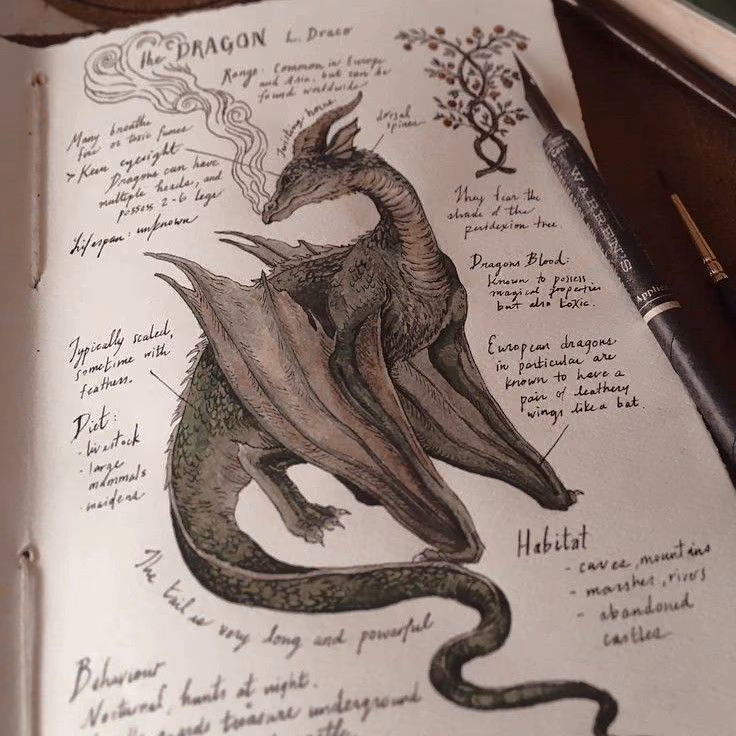 the DRAGON L. Draco
Range: Common in Europe
and Asia, but can be
found worldwide
Many breathe
fire or toxic fumes
> Keen eyesight
Dragons can have
multiple heads, and
possess 2-6 legs
Lifespan: unknown
Twisting horns
dorsal
spines
They fear the
shade of the
peridexion tree.
Dragons Blood:
Known to possess
magical properties
but also toxic.
European dragons
in particular are
known to have a
pair of leathery
wings like a bat.
Typically scaled,
sometime with
feathers.
Diet:
- livestock
- large
mammals
- maidens
Habitat
- caves, mountains
- marshes, rivers
- abandoned
castles
The tail is very long and powerful
Behaviour
Nocturnal, hunts at night.
guards treasure underground
WARREN'S